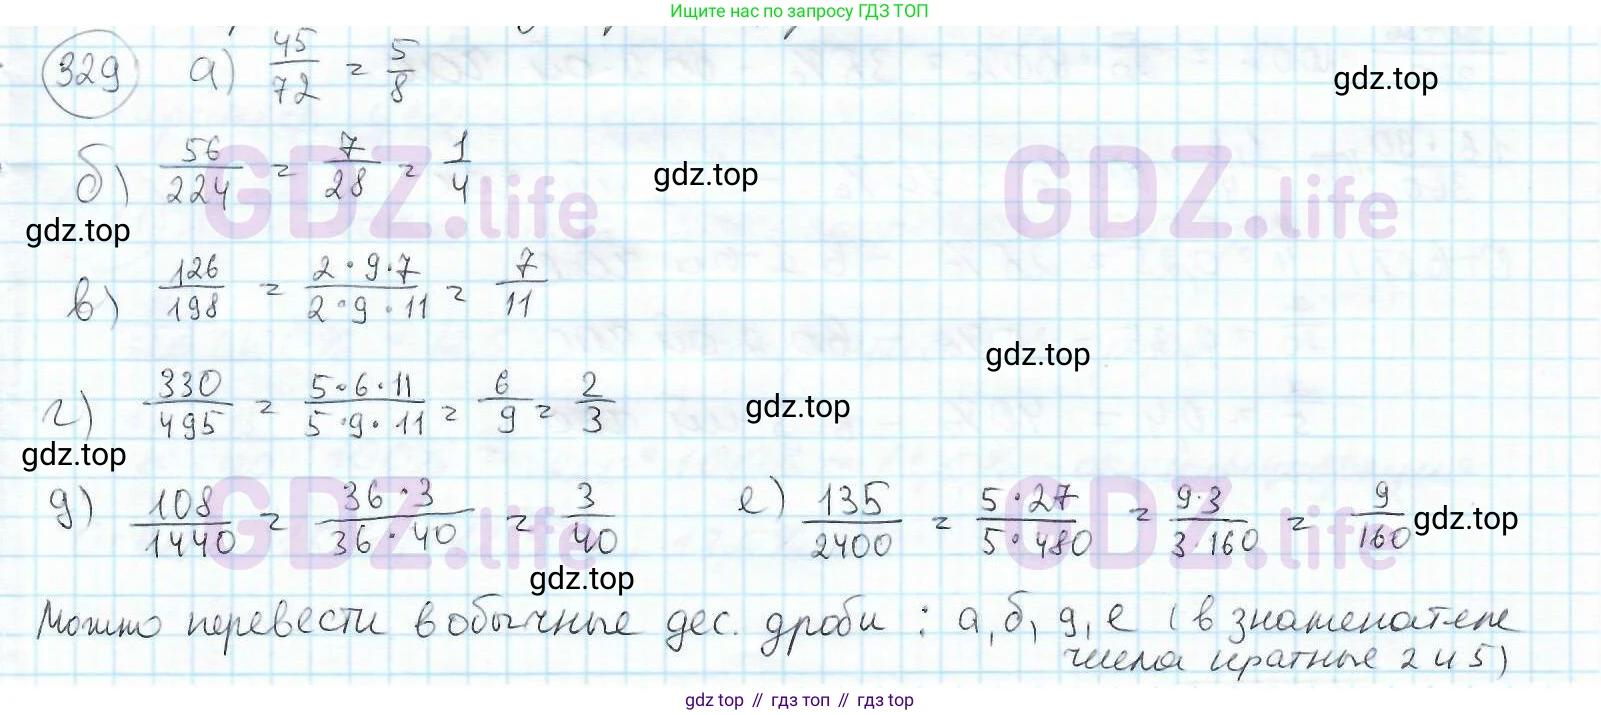 Ищите нас по запросу ГДЗ ТОП
329 а) 45/72 = 5/8
gdz.top
б) 56/224 = 7/28 = 1/4
gdz.top
GDZ.life
GDZ.life
gdz.top
в) 126/198 = 2·9·7/2·9·11 = 7/11
gdz.top
г) 330/495 = 5·6·11/5·9·11 = 6/9 = 2/3
gdz.top
gdz.top
д) 108/1440 = 36·3/36·40 = 3/40 е) 135/2400 = 5·27/5·480 = 9·3/3·160 = 9/160
gdz.top
GDZ.life
GDZ.life
gdz.top
Можно перевести в обычные дес. дроби : а, б, д, е (в знаменателе
числа кратные 2 и 5)
gdz top // гдз топ // gdz top